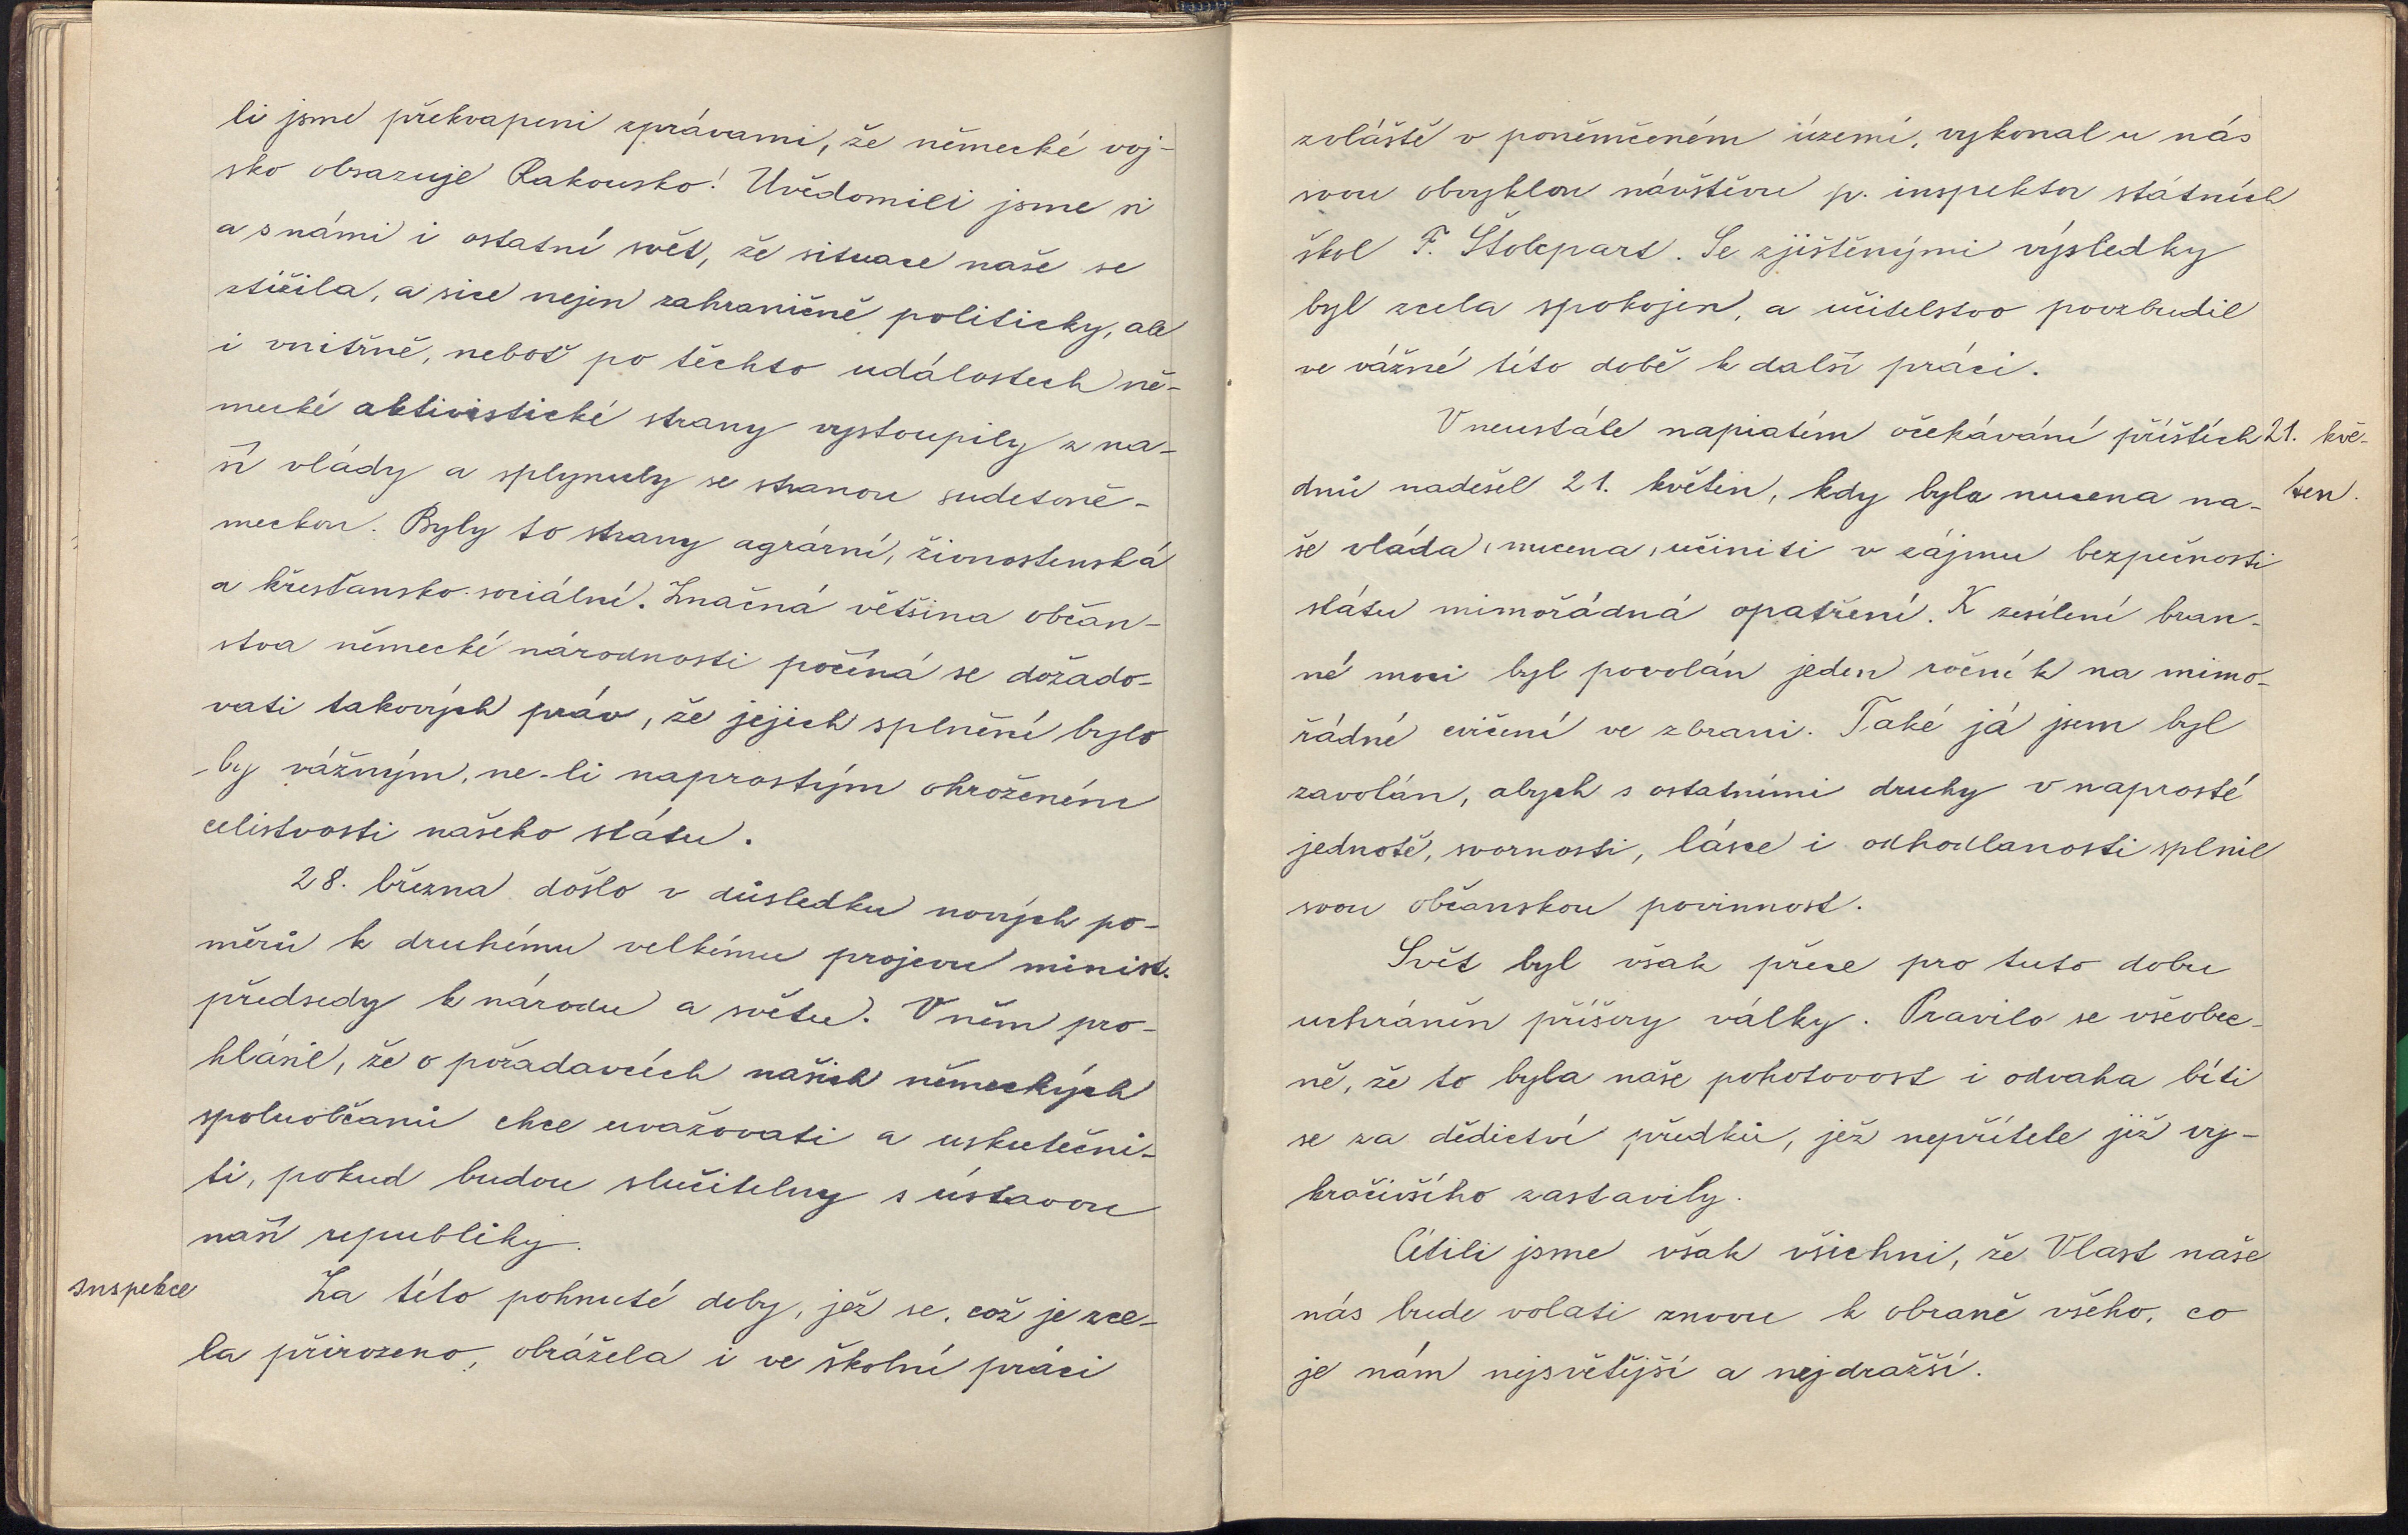 li jsme překvapeni zprávami, že německé voj-
sko obsazuje Rakousko! Uvědomili jsme si
a s námi i ostatní svět, že situace naše se
ztížila, a sice nejen zahraničně politicky, ale
i vnitřně, neboť po těchto událostech ně-
mecké aktivistické strany vystoupily z na-
ší vlády a splynuly se stranou sudetoně-
meckou. Byly to strany agrární, živnostenská
a křesťansko-sociální. Značná většina občan-
stva německé národnosti počíná se dožado-
vati takových práv, že jejich splnění bylo
by vážným, ne-li naprostým ohrožením
celistvosti našeho státu.
28. března došlo v důsledku nových po-
měrů k druhému velkému projevu minist.
předsedy k národu a světu. V něm pro-
hlásil, že o požadavcích našich německých
spoluobčanů chce uvažovati a uskutečni-
ti, pokud budou slučitelny s ústavou
naší republiky.
Inspekce
Za této pohnuté doby, jež se, což je zce-
la přirozeno, obrážela i ve školní práci
zvláště v poněmčeném území, vykonal u nás
svou obvyklou návštěvu p. inspektor státních
škol F. Štolcpart. Se zjištěnými výsledky
byl zcela spokojen, a učitelstvo povzbudil
ve vážné této době k další práci.
V neustále napiatém očekávání příštích
21. kvě-
dnů nadešel 21. květen, kdy byla nucena na-
ten.
še vláda, nucena, učiniti v zájmu bezpečnosti
státu mimořádná opatření. K zesílení bran-
né moci byl povolán jeden ročník na mimo-
řádné cvičení ve zbrani. Také já jsem byl
zavolán, abych s ostatními druhy v naprosté
jednotě, svornosti, lásce i odhodlanosti splnil
svou občanskou povinnost.
Svět byl však přece pro tuto dobu
uchráněn příšery války. Pravilo se všeobec-
ně, že to byla naše pohotovost i odvaha bíti
se za dědictví předků, jež nepřítele již vy-
kročivšího zastavily.
Cítili jsme však všichni, že Vlast naše
nás bude volati znovu k obraně všeho, co
je nám nejsvětější a nejdražší.